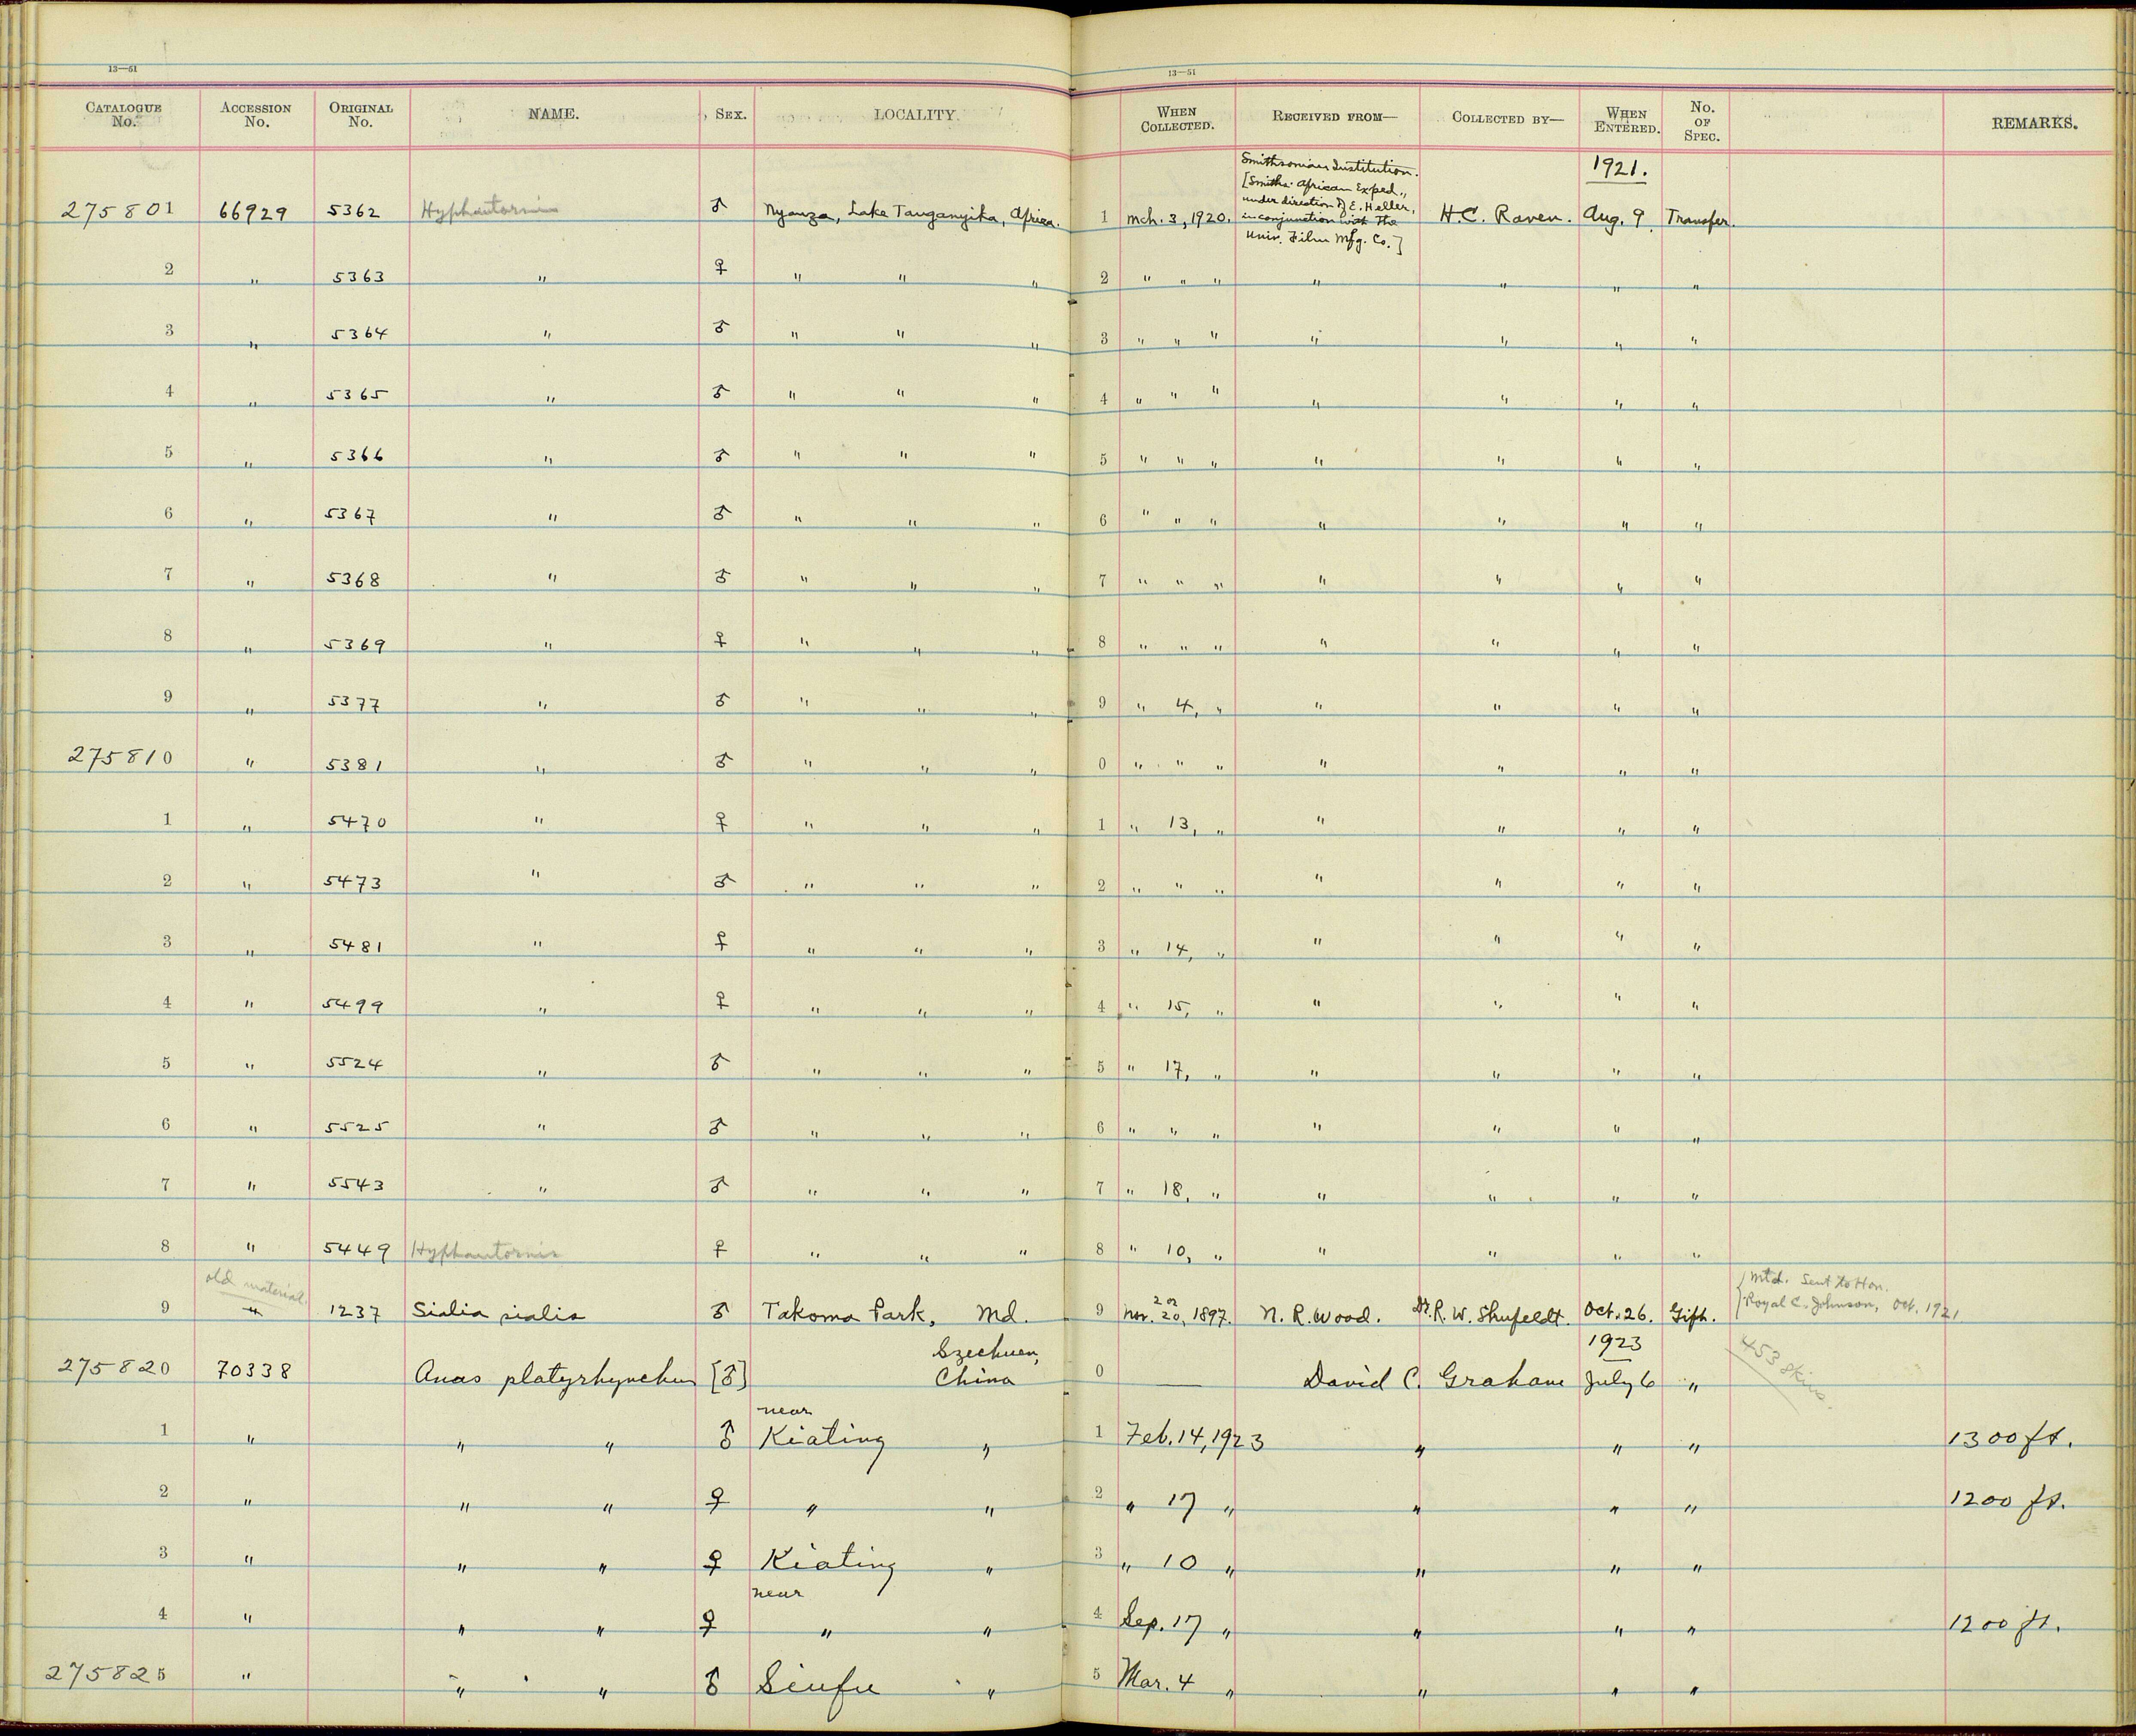 13—51
13—51
CATALOGUE No. ACCESSION No. ORIGINAL No. NAME. SEX. LOCALITY. WHEN COLLECTED. RECEIVED FROM— COLLECTED BY— WHEN ENTERED. No. OF SPEC. REMARKS.
Smithsonian Institution. 1921.
[Smiths. African Exped.,
under direction of E. Heller,
275801 66929 5362 Hyphantornis ♂ Nyanza, Lake Tanganyika, Africa. 1 Mch. 3, 1920. in conjunction with the H.C. Raven. Aug. 9. Transfer.
Univ. Film Mfg. Co.]
2 " 5363 " ♀ " " " 2 " " " " " " "
3 " 5364 " ♂ " " " 3 " " " " " " "
4 " 5365 " ♂ " " " 4 " " " " " " "
5 " 5366 " ♂ " " " 5 " " " " " " "
6 " 5367 " ♂ " " " 6 " " " " " " "
7 " 5368 " ♂ " " " 7 " " " " " " "
8 " 5369 " ♀ " " " 8 " " " " " " "
9 " 5377 " ♂ " " " 9 " 4, " " " " "
275810 " 5381 " ♂ " " " 0 " " " " " " "
1 " 5470 " ♀ " " " 1 " 13, " " " " "
2 " 5473 " ♂ " " " 2 " " " " " " "
3 " 5481 " ♀ " " " 3 " 14, " " " " "
4 " 5499 " ♀ " " " 4 " 15, " " " " "
5 " 5524 " ♂ " " " 5 " 17, " " " " "
6 " 5525 " ♂ " " " 6 " " " " " " "
7 " 5543 " ♂ " " " 7 " 18, " " " " "
8 " 5449 Hyphantornis ♀ " " " 8 " 10, " " " " "
old material. Mtd. Sent to Hon.
9 " 1237 Sialia sialis ♂ Takoma Park, Md. 9 Nov. 20, 1897. N. R. Wood. Dr. R. W. Shufeldt. Oct. 26. Gift. Royal C. Johnson, Oct. 1921
Szechuen, 1923
275820 70338 Anas platyrhynchus [♂] China 0 — David C. Graham July 6 " 453 skins
near
1 " " " ♂ Kiating " 1 Feb. 14, 1923 " " " 1300 ft.
2 " " " ♀ " " 2 " 17 " " " " 1200 ft.
3 " " " ♀ Kiating " 3 " 10 " " " "
near
4 " " " ♀ " " 4 Sep. 17 " " " " 1200 ft.
275825 " " " ♂ Suifu " 5 Mar. 4 " " " "